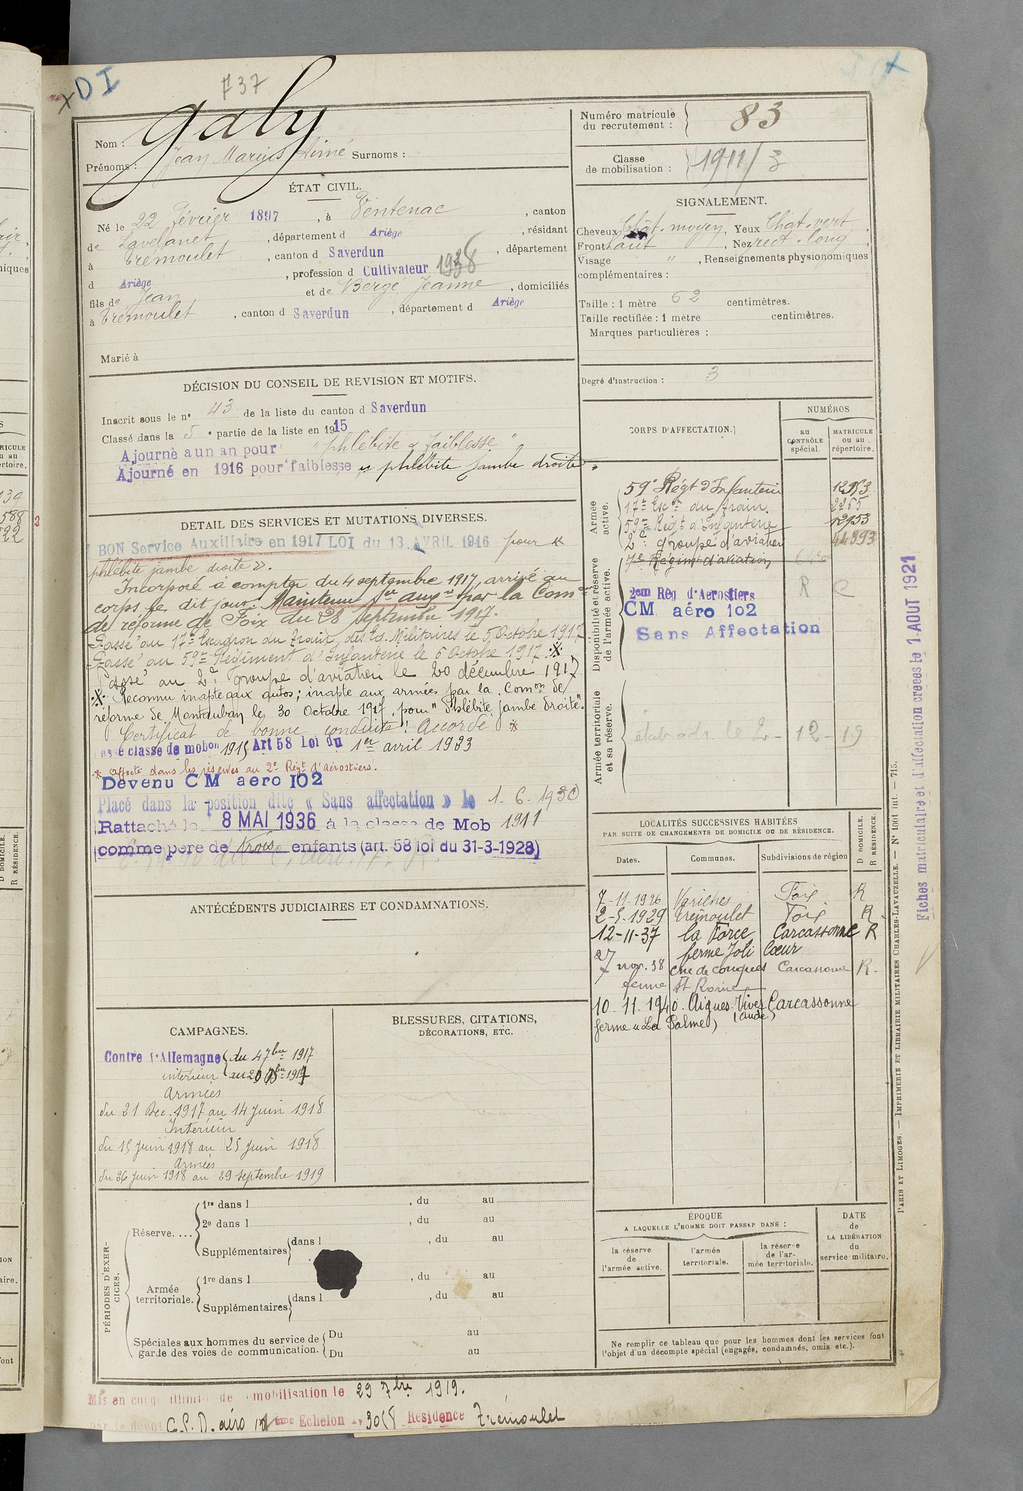 DI
737
Nom : Galy
Numéro matricule du recrutement : 83
Prénoms : Jean Marius Aimé Surnoms :
Classe de mobilisation : 1911/3
ÉTAT CIVIL.
Né le 22 Février 1897, à Ventenac, canton
de Lavelanet, département d Ariège, résidant
à Trémoulet, canton d Saverdun, département
d Ariège, profession d Cultivateur 1938
fils de Jean et de Berge Jeanne, domiciliés
à Trémoulet, canton d Saverdun, département d Ariège
Marié à
SIGNALEMENT.
Cheveux Chât. moyen, Yeux Chat. vert
Front haut, Nez rect. long,
Visage ", Renseignements physionomiques
complémentaires :
Taille : 1 mètre 62 centimètres.
Taille rectifiée : 1 mètre centimètres.
Marques particulières :
Degré d'instruction : 3
DÉCISION DU CONSEIL DE REVISION ET MOTIFS.
Inscrit sous le n° 43 de la liste du canton d Saverdun
Classé dans la 5e partie de la liste en 1915
Ajourné a un an pour "phlébite & faiblesse"
Ajourné en 1916 pour faiblesse et phlébite jambe droite.
DETAIL DES SERVICES ET MUTATIONS DIVERSES.
BON Service Auxiliaire en 1917 LOI du 13 AVRIL 1916 pour "
phlébite jambe droite ».
Incorporé à compter du 4 septembre 1917, arrivé au
corps le dit jour. Maintenu Sce auxre par la Comon
de réforme de Foix du 28 septembre 1917.
Passé au 17e Escadron du Train des Eq. Militaires le 5 Octobre 1917
Passé au 59me Régiment d'Infanterie le 6 Octobre 1917.
Passé au 2e groupe d'aviation le 20 décembre 1917
Reconnu inapte aux autos ; inapte aux armées par la Comon de
réforme de Montauban le 30 Octobre 1917 pour "Phlébite jambe droite".
Certificat de bonne conduite : Accordé
classe de mobon 1915 Art 58 Loi du 1er avril 1923
affecté dans les réserves au 2e Régt d'Aérostiers.
Devenu CM aero 102
Placé dans la position dite « Sans affectation » le 1.6.1930
Rattaché le 8 MAI 1936 à la classe de Mob 1911
(comme père de trois enfants (art. 58 loi du 31-3-1928)
CORPS D'AFFECTATION.
NUMÉROS
au CONTRÔLE spécial.
MATRICULE ou au répertoire.
Armée active.
59e Régt d'Infanterie 12953
17e Escon du Train. 2265
59me Régt d'Infanterie 12953
2e groupe d'aviation 44893
Disponibilité et réserve de l'armée active.
7e Régim' d'aviation
2em Rég d'Aerostiers R C
CM aéro 102
Sans Affectation
Armée territoriale et sa réserve.
12 - 19
Fiches matriculaire et d'affectation créées le 1 AOUT 1921
ANTÉCÉDENTS JUDICIAIRES ET CONDAMNATIONS.
LOCALITÉS SUCCESSIVES HABITÉES
PAR SUITE DE CHANGEMENTS DE DOMICILE OU DE RÉSIDENCE.
D DOMICILE. R RÉSIDENCE.
Dates. Communes. Subdivisions de région
7-11-1926 Varilhes Foix R
2-5-1929 Trémoulet Foix R
12-11-37 la Force Carcassonne R
ferme Joli Cœur
27 nov. 38 Carcassonne R
ferme St Rome
10.11.1940. Aigues Vives Carcassonne
ferme "La Palme) (Aude)
CAMPAGNES.
Contre l'Allemagne du 4 7bre 1917
intérieur au 20 Xbre 1917
Armées
du 21 Dec. 1917 au 14 Juin 1918
Intérieur
du 15 Juin 1918 au 25 Juin 1918
Armées
du 26 Juin 1918 au 29 Septembre 1919
BLESSURES, CITATIONS,
DÉCORATIONS, ETC.
PÉRIODES D'EXERCICES.
Réserve....
1re dans l , du au
2e dans l , du au
Supplémentaires dans l , du au
Armée territoriale.
1re dans l , du au
Supplémentaires dans l , du au
Spéciales aux hommes du service de
garde des voies de communication.
Du au
Du au
ÉPOQUE
A LAQUELLE L'HOMME DOIT PASSER DANS :
la réserve de l'armée active.
l'armée territoriale.
la réserve de l'armée territoriale.
DATE de LA LIBÉRATION du service militaire.
Ne remplir ce tableau que pour les hommes dont les services font
l'objet d'un décompte spécial (engagés, condamnés, omis etc.).
PARIS ET LIMOGES. — IMPRIMERIE ET LIBRAIRIE MILITAIRES CHARLES-LAVAUZELLE. — N° 1001 int. — 715.
Mis en congé illimité de démobilisation le 29 7bre 1919.
par le dépôt G.P.D. aéro Echelon 3058 Résidence Trémoulet